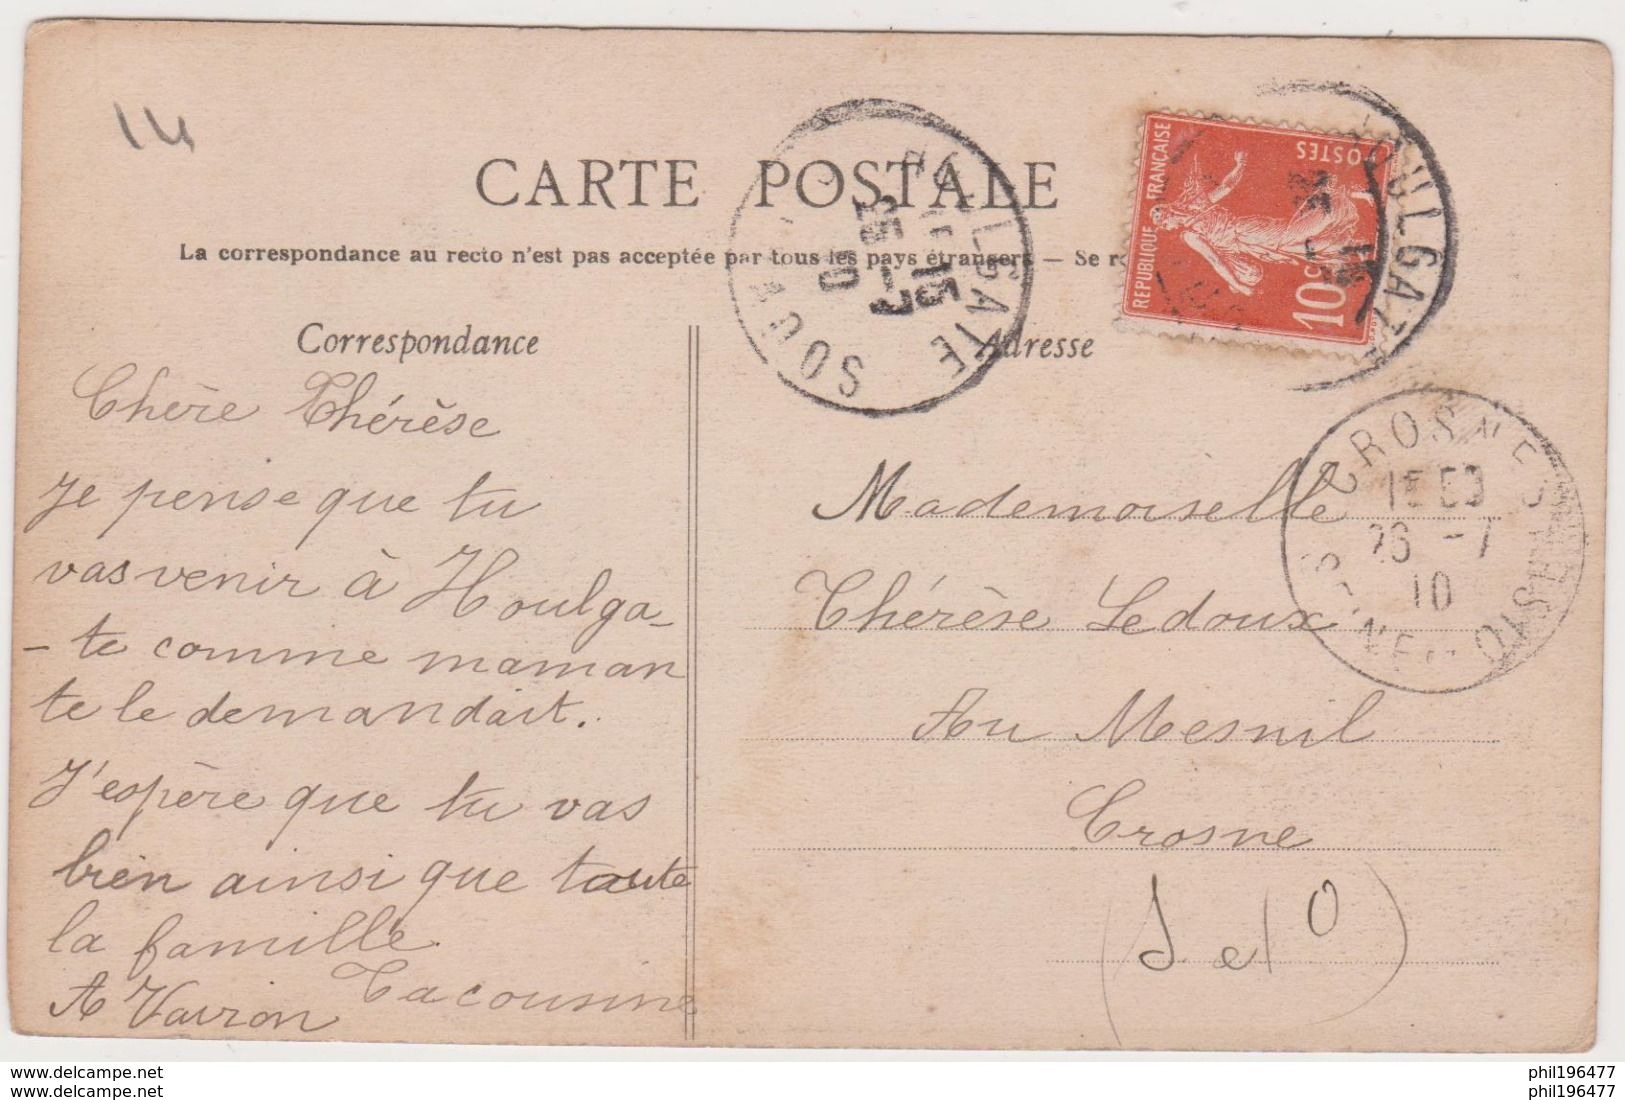 14
CARTE POSTALE
La correspondance au recto n'est pas acceptée par tous les pays étrangers — Se r
Correspondance
Chère Thérèse
Je pense que tu
vas venir à Houlga-
-te comme maman
te le demandait.
J'espère que tu vas
bien ainsi que toute
la famille.
Ta cousine
A Vairon
HOULGATE
15
25 -7
10
REPUBLIQUE FRANÇAISE
POSTES
10c
HOULGATE
Adresse
CROSNE
26 -7
10
SEINE-ET-OISE
Mademoiselle
Thérèse Ledoux
Au Mesnil
Crosne
(S et O)
phil196477
phil196477
phil196477
phil196477